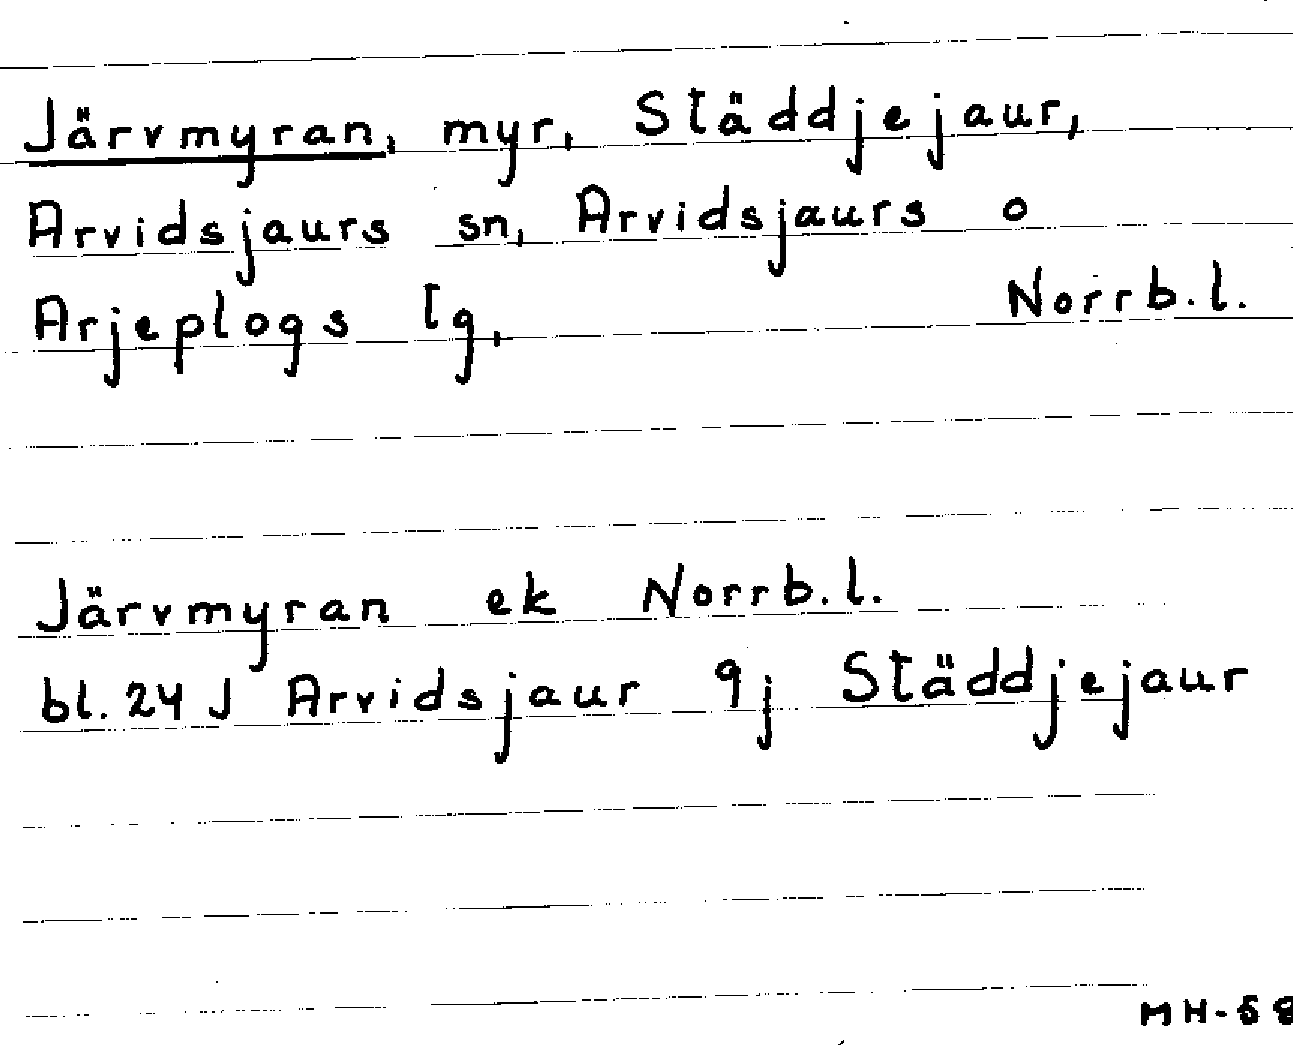 Järvmyran, myr, Städdjejaur,
Arvidsjaurs sn, Arvidsjaurs o
Arjeplogs lg, Norrb.l.
Järvmyran ek Norrb.l.
bl. 24 J Arvidsjaur 9j Städdjejaur
MH-68